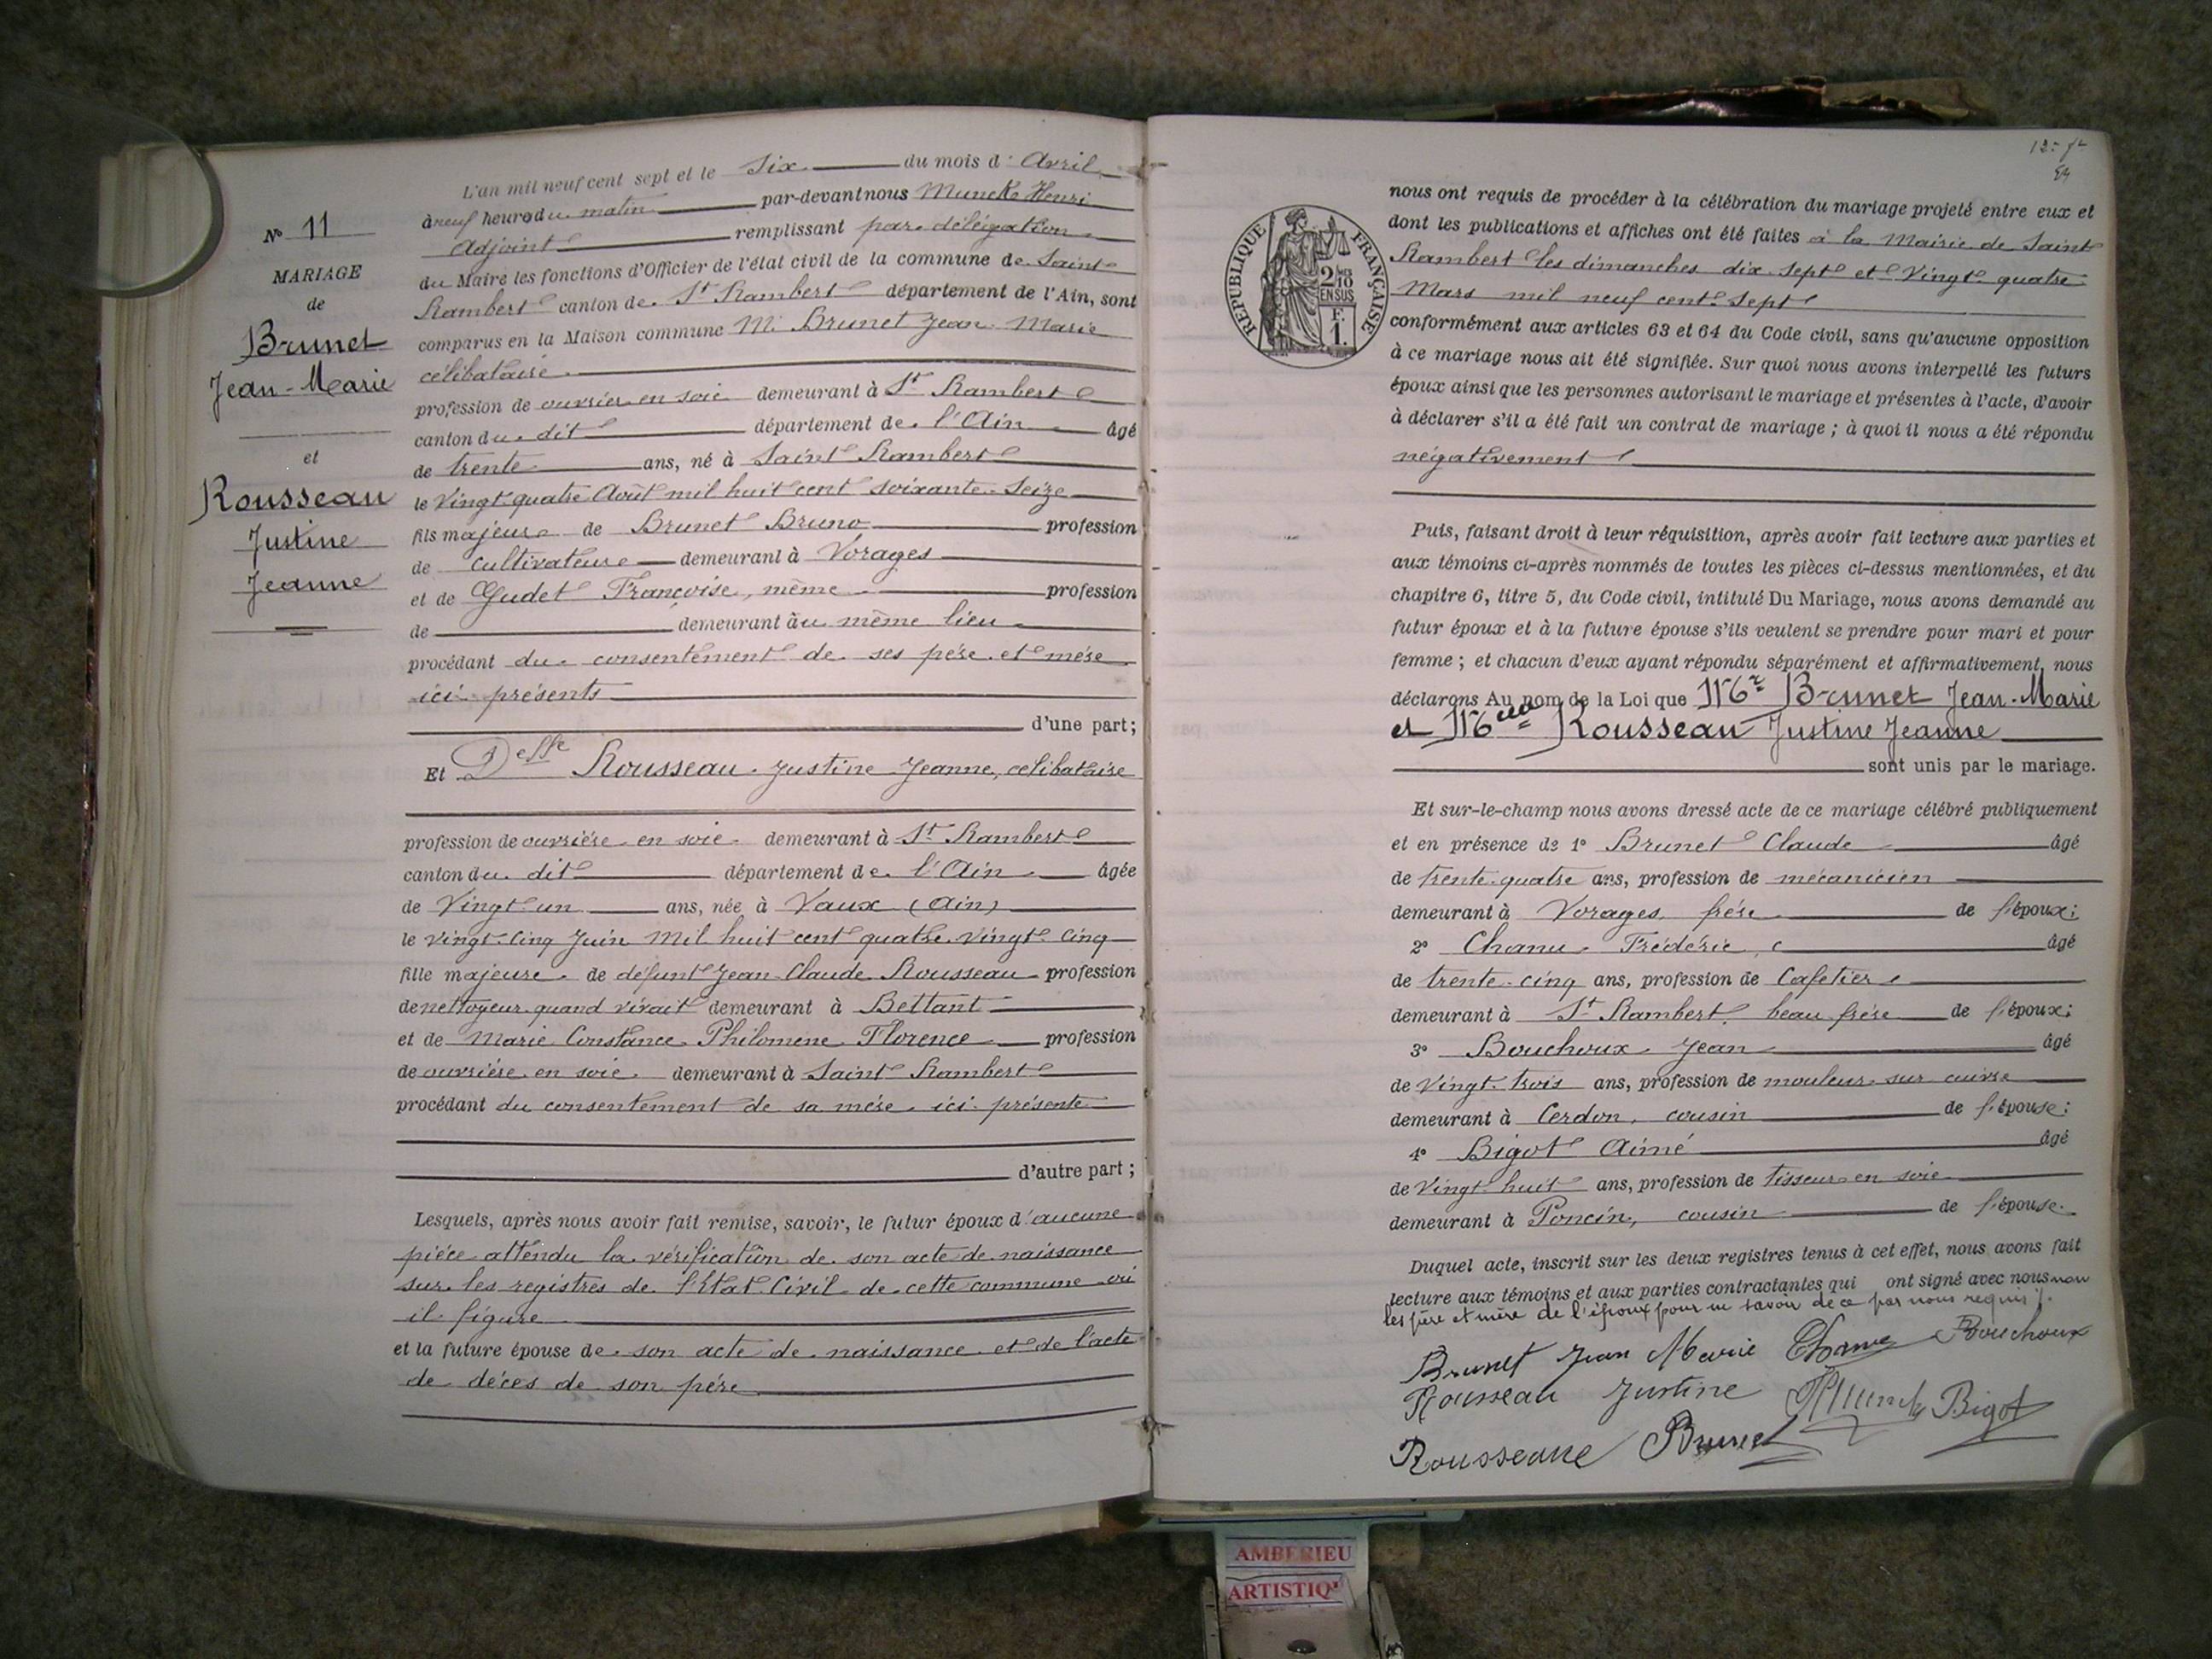 N° 11
MARIAGE
de
Brunet
Jean-Marie
et
Rousseau
Justine
Jeanne
L'an mil neuf cent sept et le Six du mois d'Avril
à neuf heure du matin par-devant nous Munck Henri
Adjoint remplissant par délégation
du Maire les fonctions d'Officier de l'état civil de la commune de Saint
Rambert canton de St Rambert département de l'Ain, sont
comparus en la Maison commune M. Brunet Jean Marie
célibataire
profession de ouvrier en soie demeurant à St Rambert
canton du dit département de l'Ain âgé
de trente ans, né à Saint Rambert
le Vingt quatre Août mil huit cent soixante-Seize
fils majeur de Brunet Bruno profession
de cultivateur demeurant à Vorages
et de Gudet Françoise, même profession
de demeurant au même lieu
procédant du consentement de ses père et mère
ici présents
d'une part;
Et Delle Rousseau Justine Jeanne, célibataire
profession de ouvrière en soie demeurant à St Rambert
canton du dit département de l'Ain âgée
de Vingt un ans, née à Vaux (Ain)
le vingt-cinq Juin Mil huit cent quatre vingt cinq
fille majeure de défunt Jean Claude Rousseau profession
de nettoyeur quand vivait demeurant à Bettant
et de Marie Constance Philomène Florence profession
de ouvrière en soie demeurant à Saint Rambert
procédant du consentement de sa mère ici présente
d'autre part;
Lesquels, après nous avoir fait remise, savoir, le futur époux d'aucune
pièce attendu la vérification de son acte de naissance
sur les registres de l'Etat Civil de cette commune où
il figure
et la future épouse de son acte de naissance et de l'acte
de décès de son père
RÉPUBLIQUE FRANÇAISE
2/10
EN SUS
F.
1.
nous ont requis de procéder à la célébration du mariage projeté entre eux et
dont les publications et affiches ont été faites à la Mairie de Saint
Rambert les dimanches dix sept et Vingt quatre
Mars mil neuf cent sept
conformément aux articles 63 et 64 du Code civil, sans qu'aucune opposition
à ce mariage nous ait été signifiée. Sur quoi nous avons interpellé les futurs
époux ainsi que les personnes autorisant le mariage et présentes à l'acte, d'avoir
à déclarer s'il a été fait un contrat de mariage ; à quoi il nous a été répondu
négativement
Puis, faisant droit à leur réquisition, après avoir fait lecture aux parties et
aux témoins ci-après nommés de toutes les pièces ci-dessus mentionnées, et du
chapitre 6, titre 5, du Code civil, intitulé Du Mariage, nous avons demandé au
futur époux et à la future épouse s'ils veulent se prendre pour mari et pour
femme ; et chacun d'eux ayant répondu séparément et affirmativement, nous
déclarons Au nom de la Loi que Mr Brunet Jean-Marie
et Melle Rousseau Justine Jeanne
sont unis par le mariage.
Et sur-le-champ nous avons dressé acte de ce mariage célébré publiquement
et en présence de 1° Brunet Claude âgé
de trente-quatre ans, profession de mécanicien
demeurant à Vorages, frère de l'époux;
2° Chanu Frédéric, âgé
de trente-cinq ans, profession de Cafetier
demeurant à St Rambert, beau frère de l'époux;
3° Bouchoux Jean âgé
de Vingt-trois ans, profession de mouleur sur cuivre
demeurant à Cerdon, cousin de l'épouse;
4° Bigot Aimé âgé
de Vingt huit ans, profession de tisseur en soie
demeurant à Poncin, cousin de l'épouse.
Duquel acte, inscrit sur les deux registres tenus à cet effet, nous avons fait
lecture aux témoins et aux parties contractantes qui ont signé avec nous non
les père et mère de l'époux pour ne savoir de ce par nous requis.
Brunet Jean Marie Chanu Bouchoux
Rousseau Justine HMunck Bigot
Rousseau Brunet
AMBERIEU
ARTISTIQ